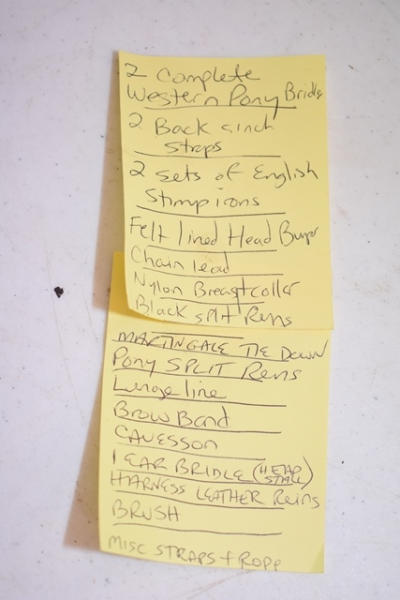 2 Complete
Western Pony Bridle
2 Back cinch
straps
2 sets of English
Stirrup irons
Felt lined Head Bumper
Chain lead
Nylon Breastcollar
Black split Reins
MARTINGALE TIE DOWN
Pony SPLIT Reins
Lunge line
Brow Band
CAVESSON
1 EAR BRIDLE (HEAD
STALL)
HARNESS LEATHER Reins
BRUSH
MISC STRAPS + ROPE